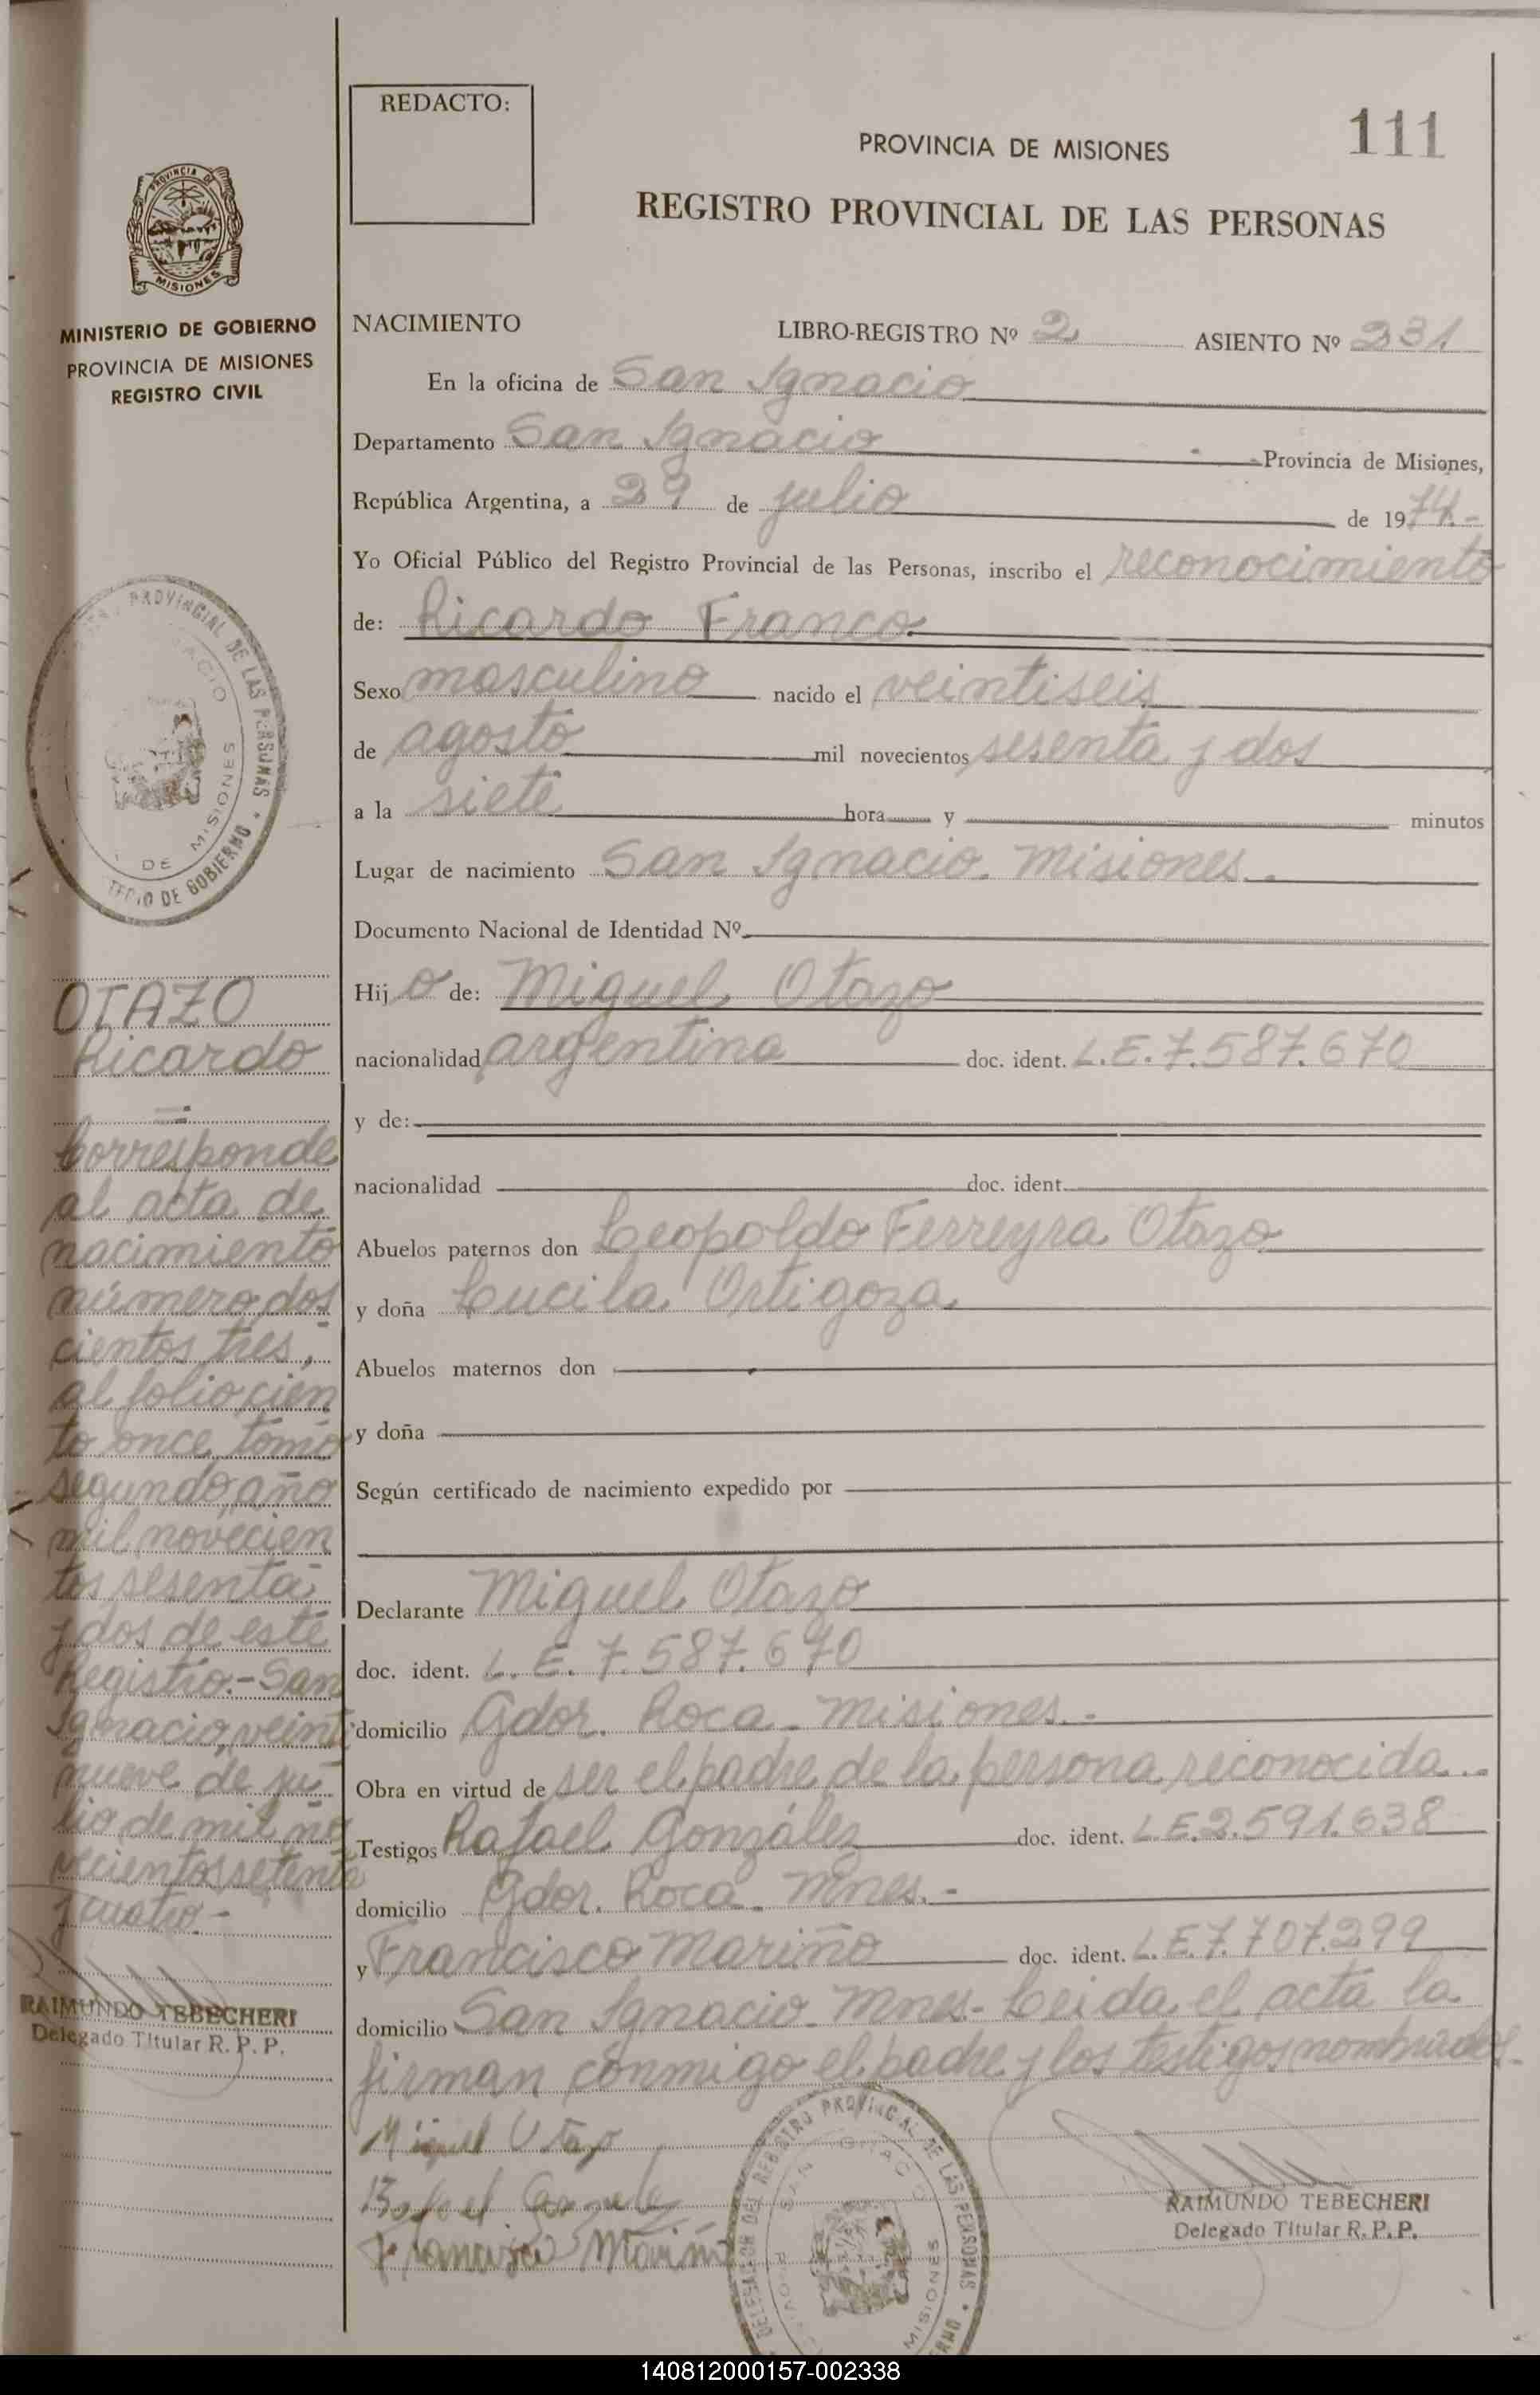 REDACTO:
PROVINCIA DE MISIONES
111
REGISTRO PROVINCIAL DE LAS PERSONAS
PROVINCIA DE
MISIONES
MINISTERIO DE GOBIERNO
PROVINCIA DE MISIONES
REGISTRO CIVIL
NACIMIENTO LIBRO-REGISTRO Nº 2 ASIENTO Nº 331
En la oficina de San Ignacio
Departamento San Ignacio Provincia de Misiones,
República Argentina, a 29 de julio de 1974.-
Yo Oficial Público del Registro Provincial de las Personas, inscribo el reconocimiento
de: Ricardo Franco
Sexo masculino nacido el veintiseis
de agosto mil novecientos sesenta y dos
a la siete hora y minutos
Lugar de nacimiento San Ignacio. Misiones.-
Documento Nacional de Identidad Nº
Hijo de: Miguel Otazo
nacionalidad argentina doc. ident. L.E.7.587.670
y de:
nacionalidad doc. ident.
Abuelos paternos don Leopoldo Ferreyra Otazo
y doña Lucila Ortigoza
Abuelos maternos don
y doña
Según certificado de nacimiento expedido por
Declarante Miguel Otazo
doc. ident. L.E. 7.587.670
domicilio Gdor. Roca - Misiones.-
Obra en virtud de ser el padre de la persona reconocida.-
Testigos Rafael González doc. ident. L.E.2.591.638
domicilio Gdor. Roca - Mnes.-
y Francisco Mariño doc. ident. L.E.7.707.299
domicilio San Ignacio - Mnes - Leida el acta la
firman conmigo el padre y los testigos nombrados.-
Miguel Otazo
Rafael Gonzalez
Francisco Mariño
DELEGACION DEL REGISTRO PROVINCIAL DE LAS PERSONAS
SAN IGNACIO
MISIONES
RAIMUNDO TEBECHERI
Delegado Titular R.P.P.
PROVINCIAL DE LAS PERSONAS
DE MISIONES
DE GOBIERNO
OTAZO
Ricardo
=
Corresponde
al acta de
nacimiento
número dos
cientos tres,
al folio cien
to once, tomo
segundo, año
mil novecien
tos sesenta
y dos de este
Registro.- San
Ignacio, veinti
nueve de ju
lio de mil no
vecientos setenta
y cuatro.-
RAIMUNDO TEBECHERI
Delegado Titular R. P. P.
140812000157-002338